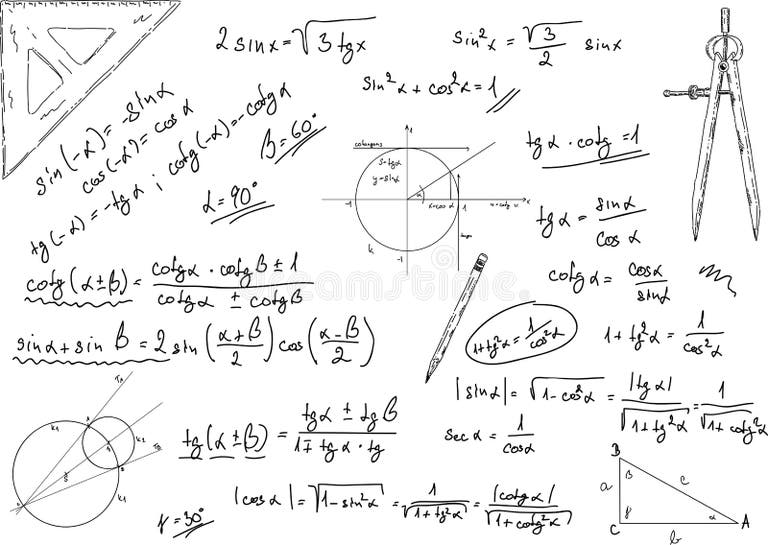 2 sinx = √3 tgx
sin²x = √3/2 sinx
sin²α + cos²α = 1
sin(-α) = -sinα
cos(-α) = cosα
tg(-α) = -tgα ; cotg(-α) = -cotgα
β = 60°
α = 90°
cotangens
S=tgα
y=sinα
α
x=cos α
x=cotg α
x
-1
1
1
-1
k
tgα · cotg = 1
tgα = sinα/cosα
cotgα = cosα/sinα
cotg(α±β) = cotgα · cotgβ ± 1/cotgα ± cotgβ
sinα + sin β = 2 sin (α+β/2) cos (α-β/2)
1+tg²α = 1/cos²α
1+tg²α = 1/cos²α
|sinα| = √1-cos²α = |tgα|/√1+tg²α = 1/√1+cotg²α
tg(α±β) = tgα ± tgβ/1∓tgα · tg
secα = 1/cosα
|cosα| = √1-sin²α = 1/√1+tg²α = |cotgα|/√1+cotg²α
γ = 30°
k1
k2
S
k1
B
β
a
c
γ
α
C
b
A
dreamstime